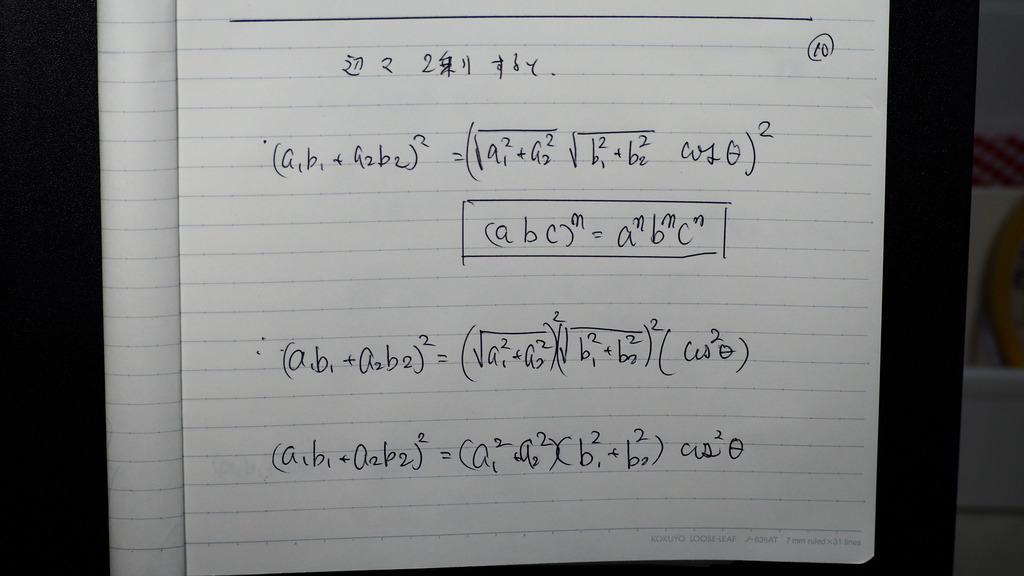 ⑩
辺々2乗りすると.
(a₁b₁+a₂b₂)² = (√a₁²+a₂² √b₁²+b₂² cosθ)²
(abc)ⁿ = aⁿbⁿcⁿ
∴ (a₁b₁+a₂b₂)² = (√a₁²+a₂²)²(√b₁²+b₂²)²(cos²θ)
(a₁b₁+a₂b₂)² = (a₁²+a₂²)(b₁²+b₂²) cos²θ
KOKUYO LOOSE-LEAF ノ-836AT 7 mm ruled×31 lines